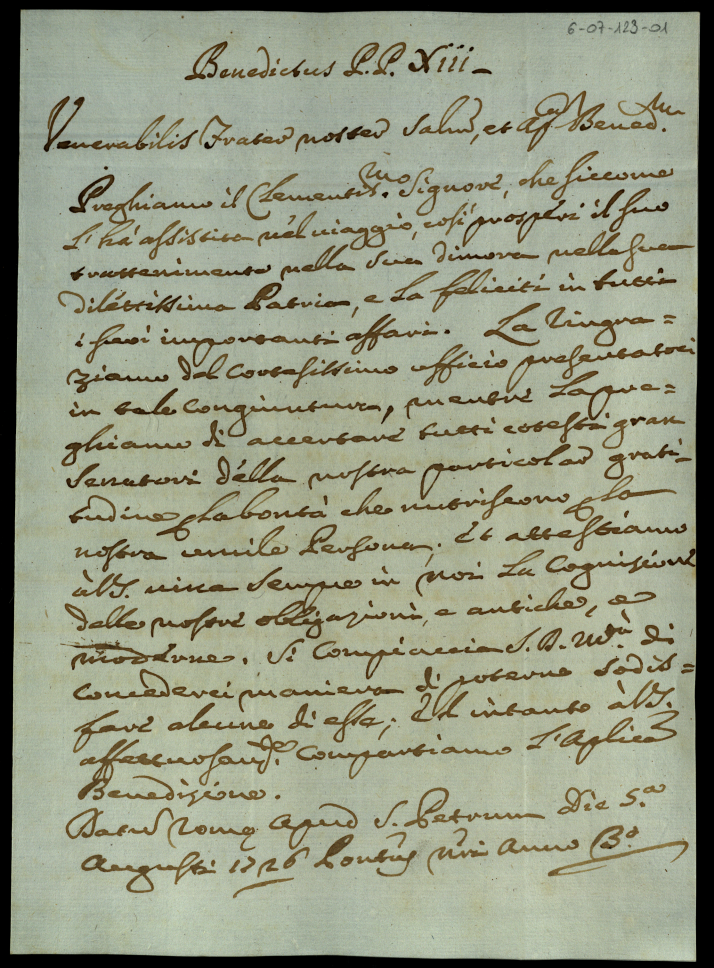 6-07-123-01
Benedictus P.P. Xiii
Venerabilis Frater noster Salut, et Ap.cam Bened.m
Preghiamo il Clementis.mo Signore, che siccome
l'hà assistita nel viaggio, così prosperi il suo
trattenimento nella sua dimora nella sua
dilettissima Patria, e la feliciti in tutti
i suoi importanti affari. La ringra=
ziamo del cortesissimo officio presentatoci
in tale congiuntura, mentre la pre=
ghiamo di accertare tutti cotesti gran
Senatori della nostra particolar grati-
tudine p la bontà che nutriscono p la
nostra umile Persona; Et attestiamo
à VS. viva sempre in noi la Cognizione
delle nostre obligazioni, e antiche, e
moderne. Si compiaccia S.D.M.tà di
concederci maniera di poterne sodis=
fare alcune di esse; Ed intanto à VS.
affettuosam.te compartiamo l'Aplica
Benedizione.
Datum Romę Apud S. Petrum Die 5.a
Augusti 1726 Pontus nri Anno 3.o